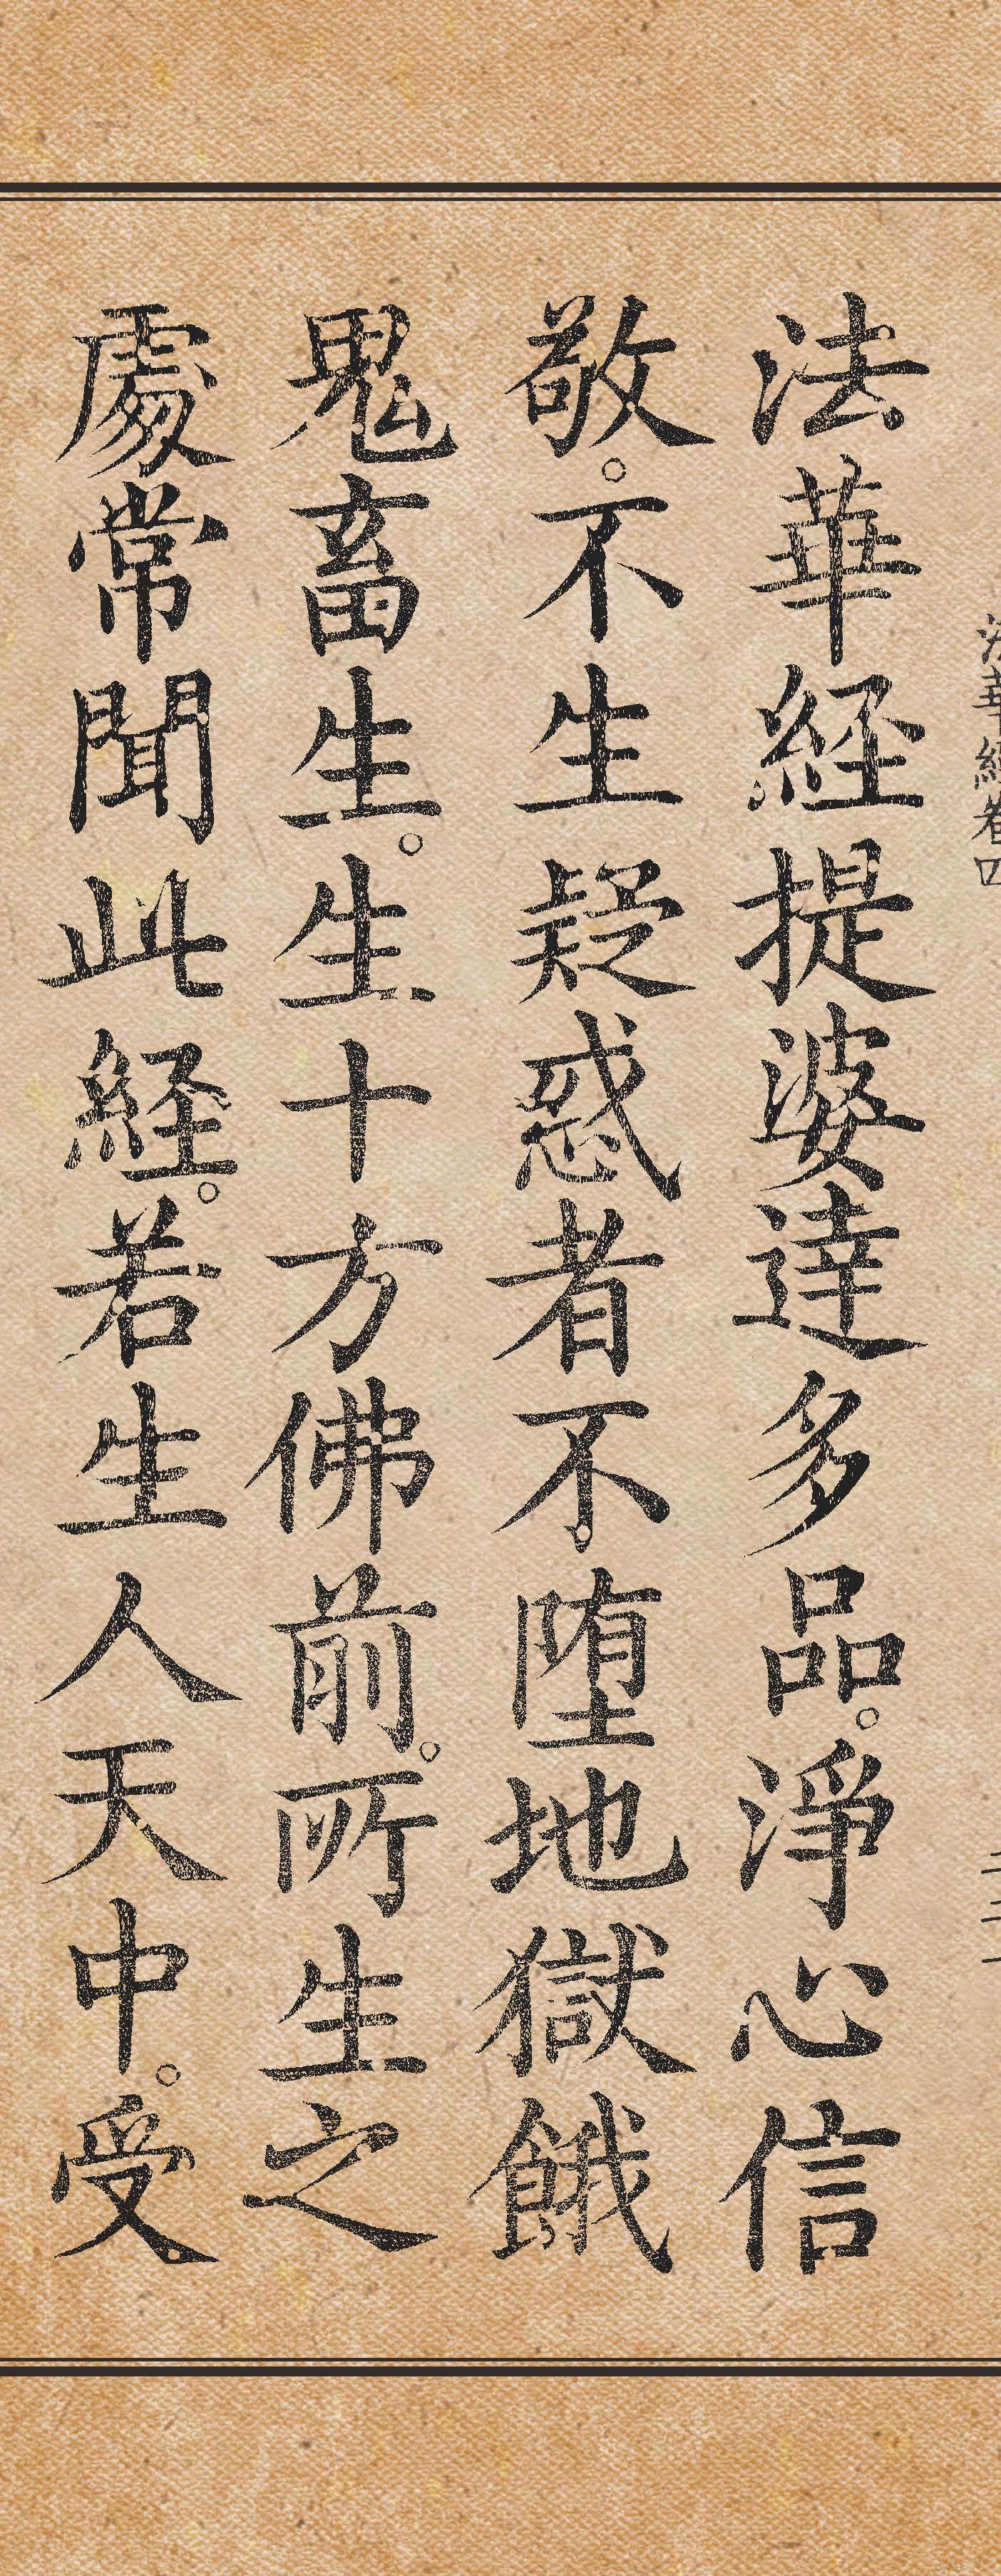 法華経卷四
二二一
法華経提婆達多品。淨心信
敬。不生疑惑者不堕地獄餓
鬼畜生。生十方佛前。所生之
處常聞此経。若生人天中。受